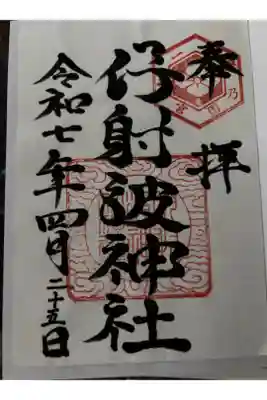 奉拝
伊射波神社
令和七年四月二十五日